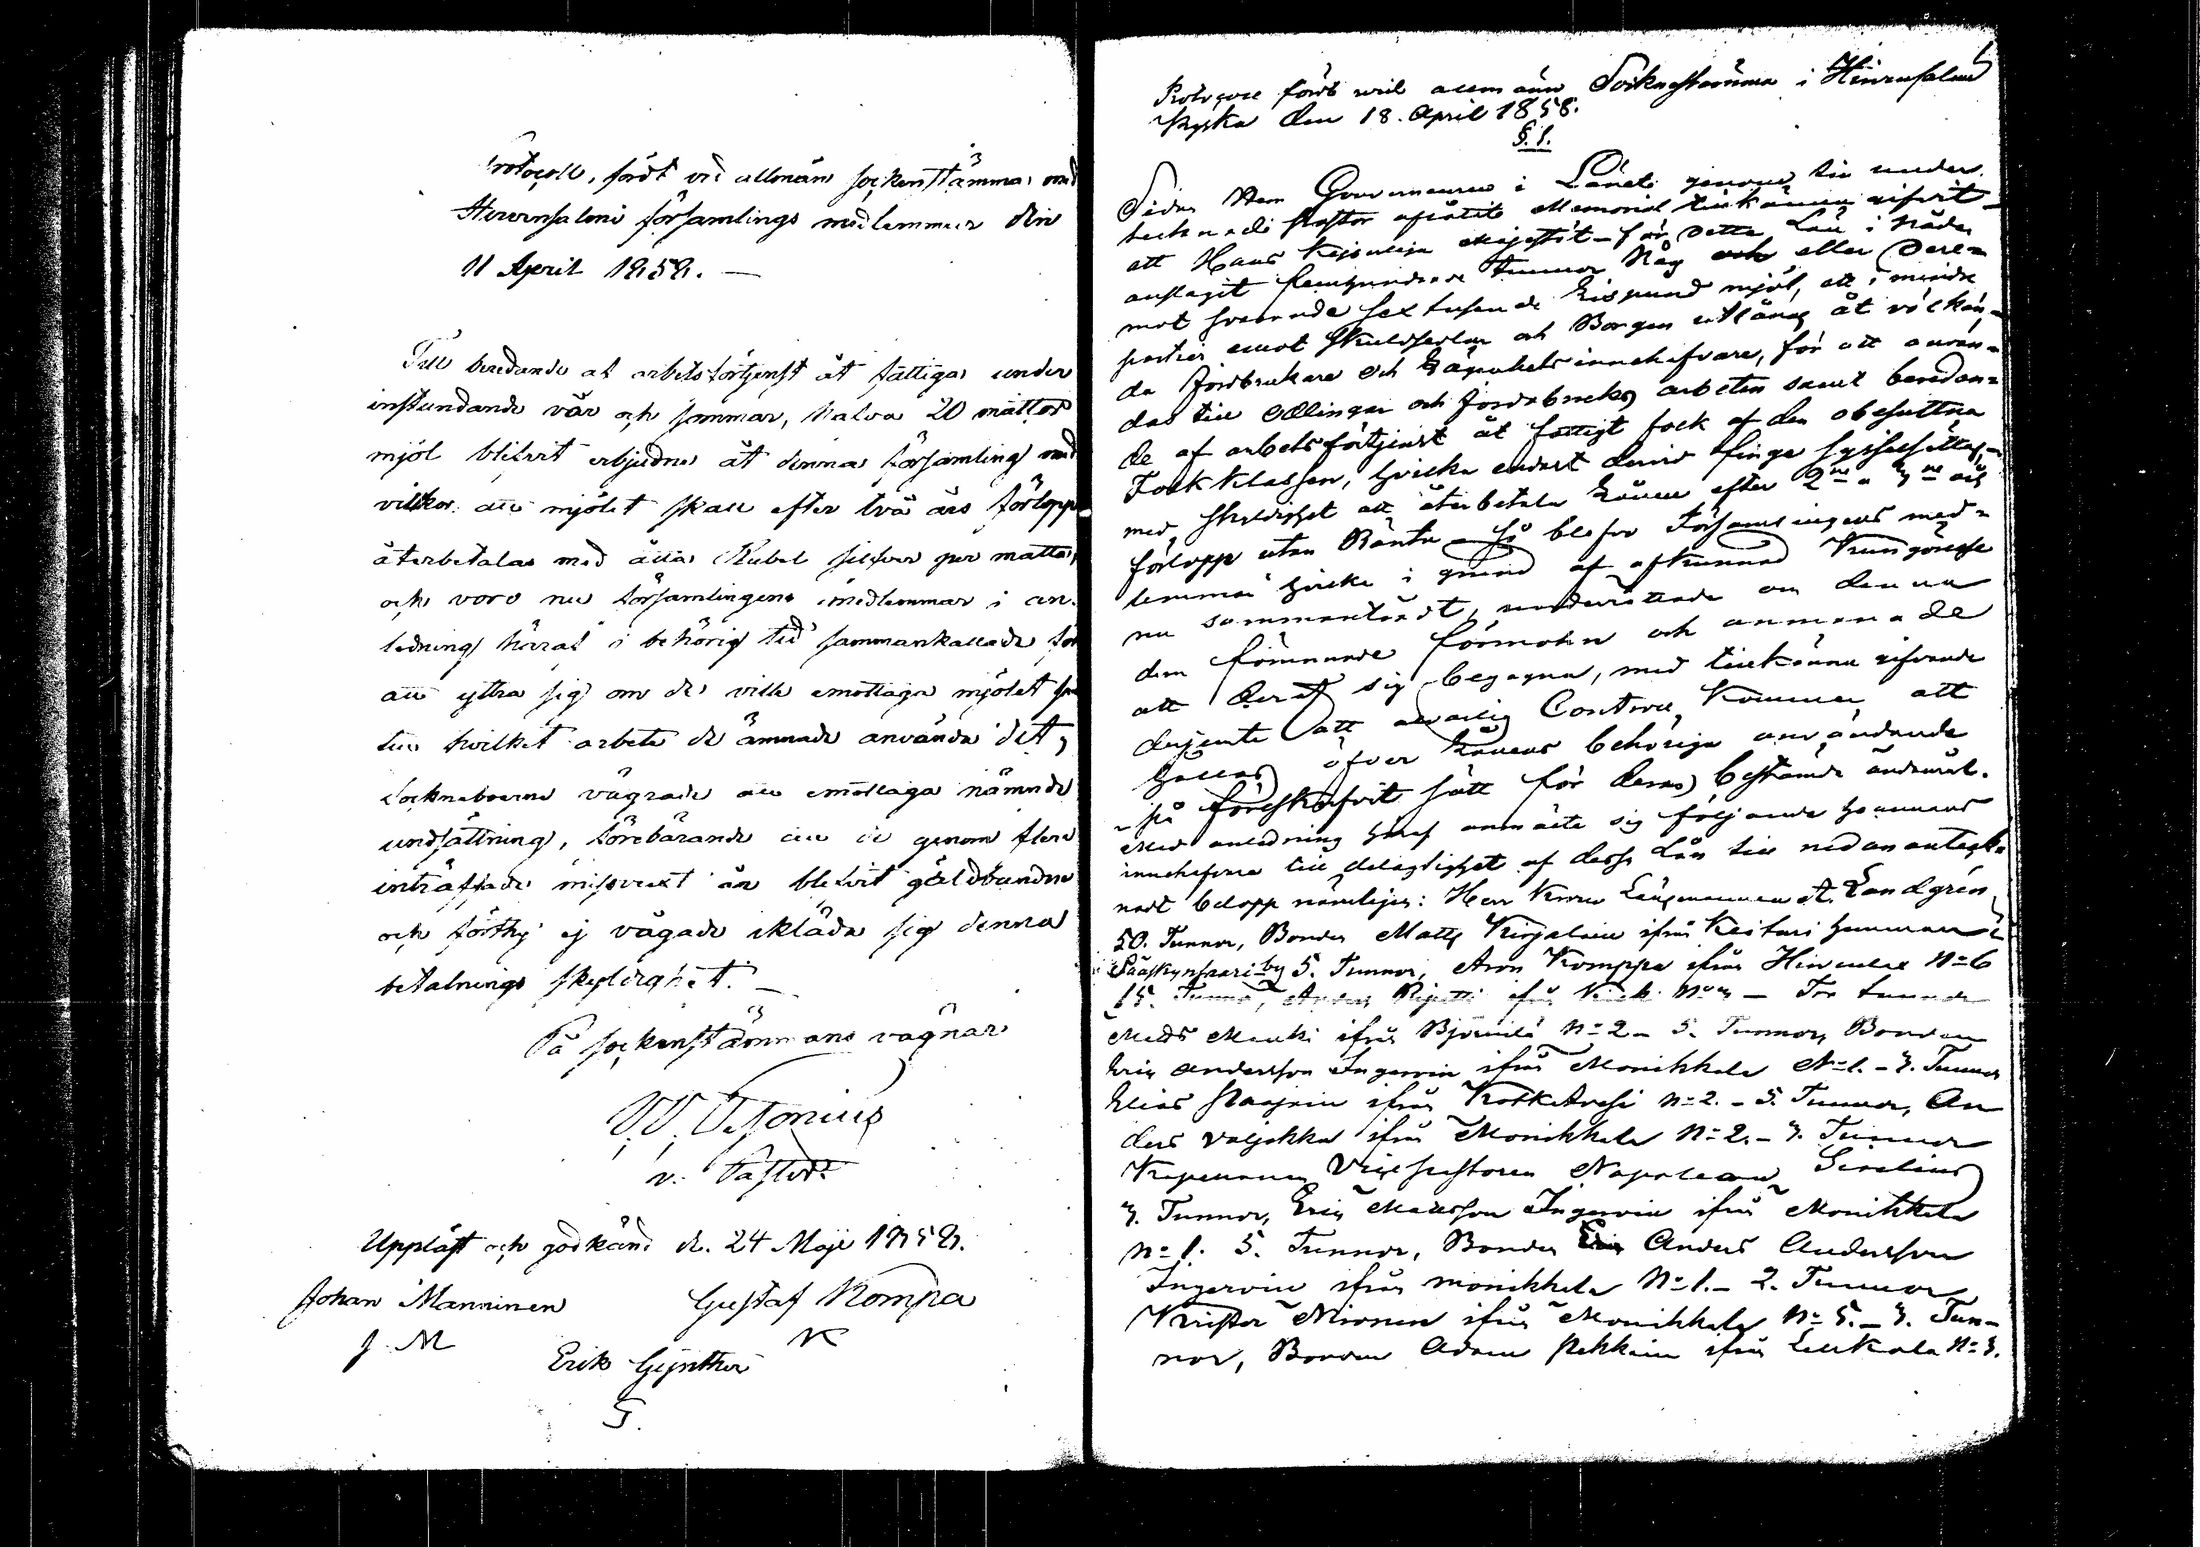 Protocoll, fördt vid allmän sockenstämma med
Hirvensalmi församlings medlemmar den
11 April 1858. —
Till beredande at arbetsförtjenst åt fattiga under
instundande vår och sommar, halva 20 mattor
mjöl blifvit erbjudna åt denna församling med
vilkor att mjölet skall efter två års förlopp
återbetalas med åtta Rubel silfver per matta,
och voro nu församlingens medlemmar i an-
ledning häraf i behörig tid sammankallade för
att yttra sig om de ville emottaga mjölet
till hvilket arbete de ämnade använda det,
Socknaboerne vägrade att emottaga nämnde
undsättning, förebärande att de genom flere
inträffade missvext år blifvit gäldbundne
och förthy ej vågade ikläda sig denna
betalnings skyldighet. —
På sockenstämmans vägnar
v. Pastor
Uppläst och godkänd d. 24 Maji 1858.
Johan Manninen Gustaf Kompa
J M K
Erik Gynther
G.
Protocoll fördt vid allmänn Socknestämma i Hirvensalmi
Kyrka den 18. April 1858.
§. 1.
Sedan Herr Gouverneuren i Länet genom till under-
tecknade Pastor aflåtit Memorial tillkänna gifvit
att Hans Kejserliga Majestät för detta Län i Nåder
anslagit femhundrade Tunnor Råg och eller dere-
mot svarande sextusende Lispund mjöl, att i mindre
partier emot skuldsedlar och Borgen utlånas åt välkän-
da Jordbrukare och Lägenhets innehafvare, för att använ-
das till odlingar och jordabruks arbeten samt beredan-
de af arbetsförtjenst åt fattigt folk af den obesuttna
Folk Klassen, hvilka endast derwid finge sysselsättas,
med skyldighet att återbetala Lånen efter 2ne a 3ne års
förlopp utan Ränta - så blefvo Församlingens med-
lemmar hvilka i grund af afkunnad Kungörelse
nu sammanträdt, underrättade om denna
dem förunnade förmohn och anmanade
att deraf sig begagna, med tillkänna gifvande
derjemte att alvarlig Controll kommer att
hållas öfver Lånens behöriga användande
på föreskrifvit sätt för deras bestämde ändamål.
Med anledning häraf anmälte sig följande hemmans
innehafvare till delagtighet af dessa Lån till nedan anteck-
nadt belopp nämligen: Herr Krono Länsmannen A. Landgrén
50. Tunnor, Bonden Matts Kirjalain ifrån Keitari hemman i
Pääskynsaari by 5. Tunnor, Aron Komppa ifrån Hirvenlax No 6
15. Tunnor, Anders ifrån No 3 — Tre tunnor
Mats Mauki ifrån Björnilä No 2 - 5. Tunnor, Bonden
Eric Andersson Ingervin ifrån Monikkala No 1. - 3. Tunnor
Elias ifrån No 2. - 5. Tunnor, An
ders Valjakka ifrån Monikkala No 2. - 3. Tunnor
Kapellanen Vice pastoren Napoleon Sirelius
3. Tunnor, Eric Matsson Ingervin ifrån Monikkala
No 1. 5. Tunnor, Bonden Eric Anders Andersson
Ingervin ifrån Monikkala No 1. - 2. Tunnor
Krister Nironen ifrån Monikkala No 5. - 3. Tun-
nor, Bonden Adam Pekkinen ifrån Lelkola No 3.